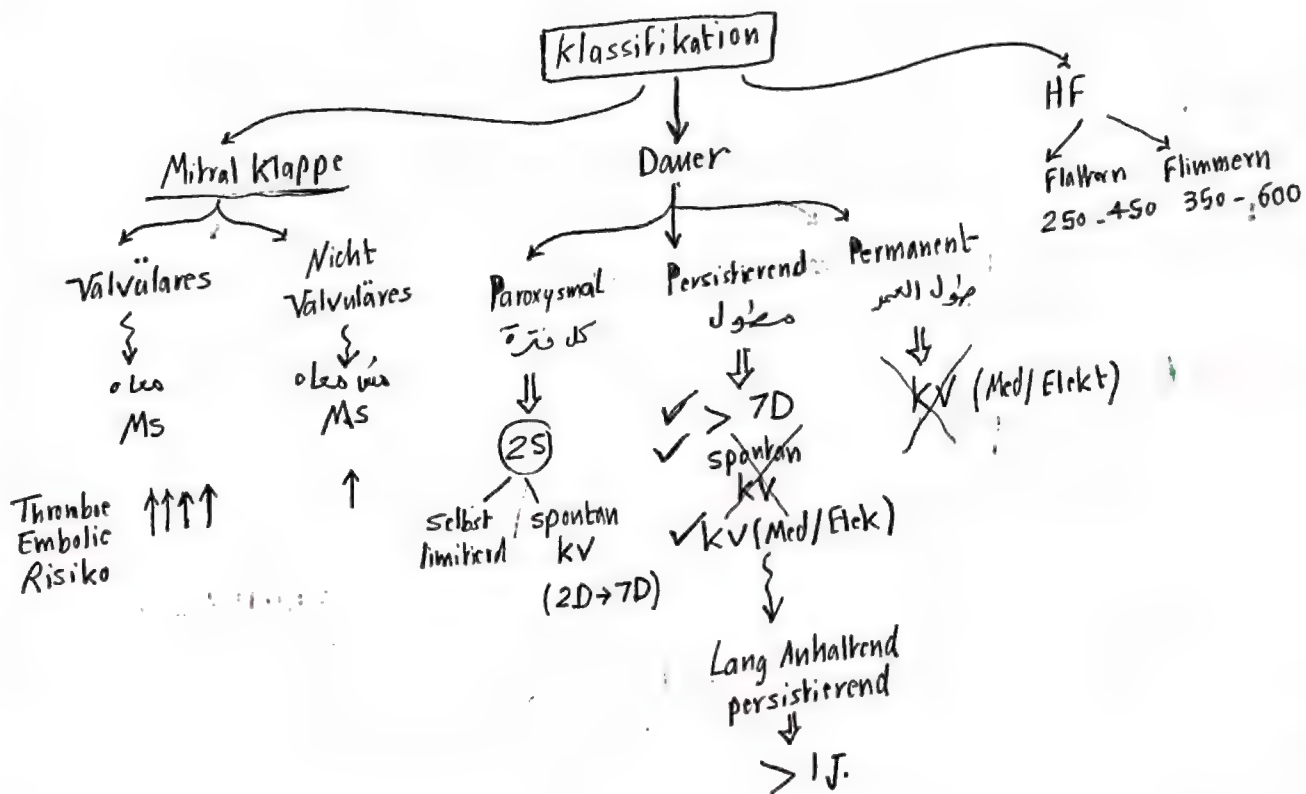 Klassifikation
Mitral Klappe
Valvüläres
معاه
MS
Nicht
Valvuläres
مش معاه
MS
Thrombie
Embolie
Risiko
↑↑↑↑
↑
Dauer
Paroxysmal
كل فترة
2S
selbst
limitierd
spontan
KV
(2D→7D)
Persistierend
مطول
✓ > 7D
✓ spontan
KV
✓ KV (Med/Elek)
Lang Anhaltend
persistierend
> 1 J.
Permanent
طول العمر
KV (Med/Elekt)
HF
Flattern
250-450
Flimmern
350-600